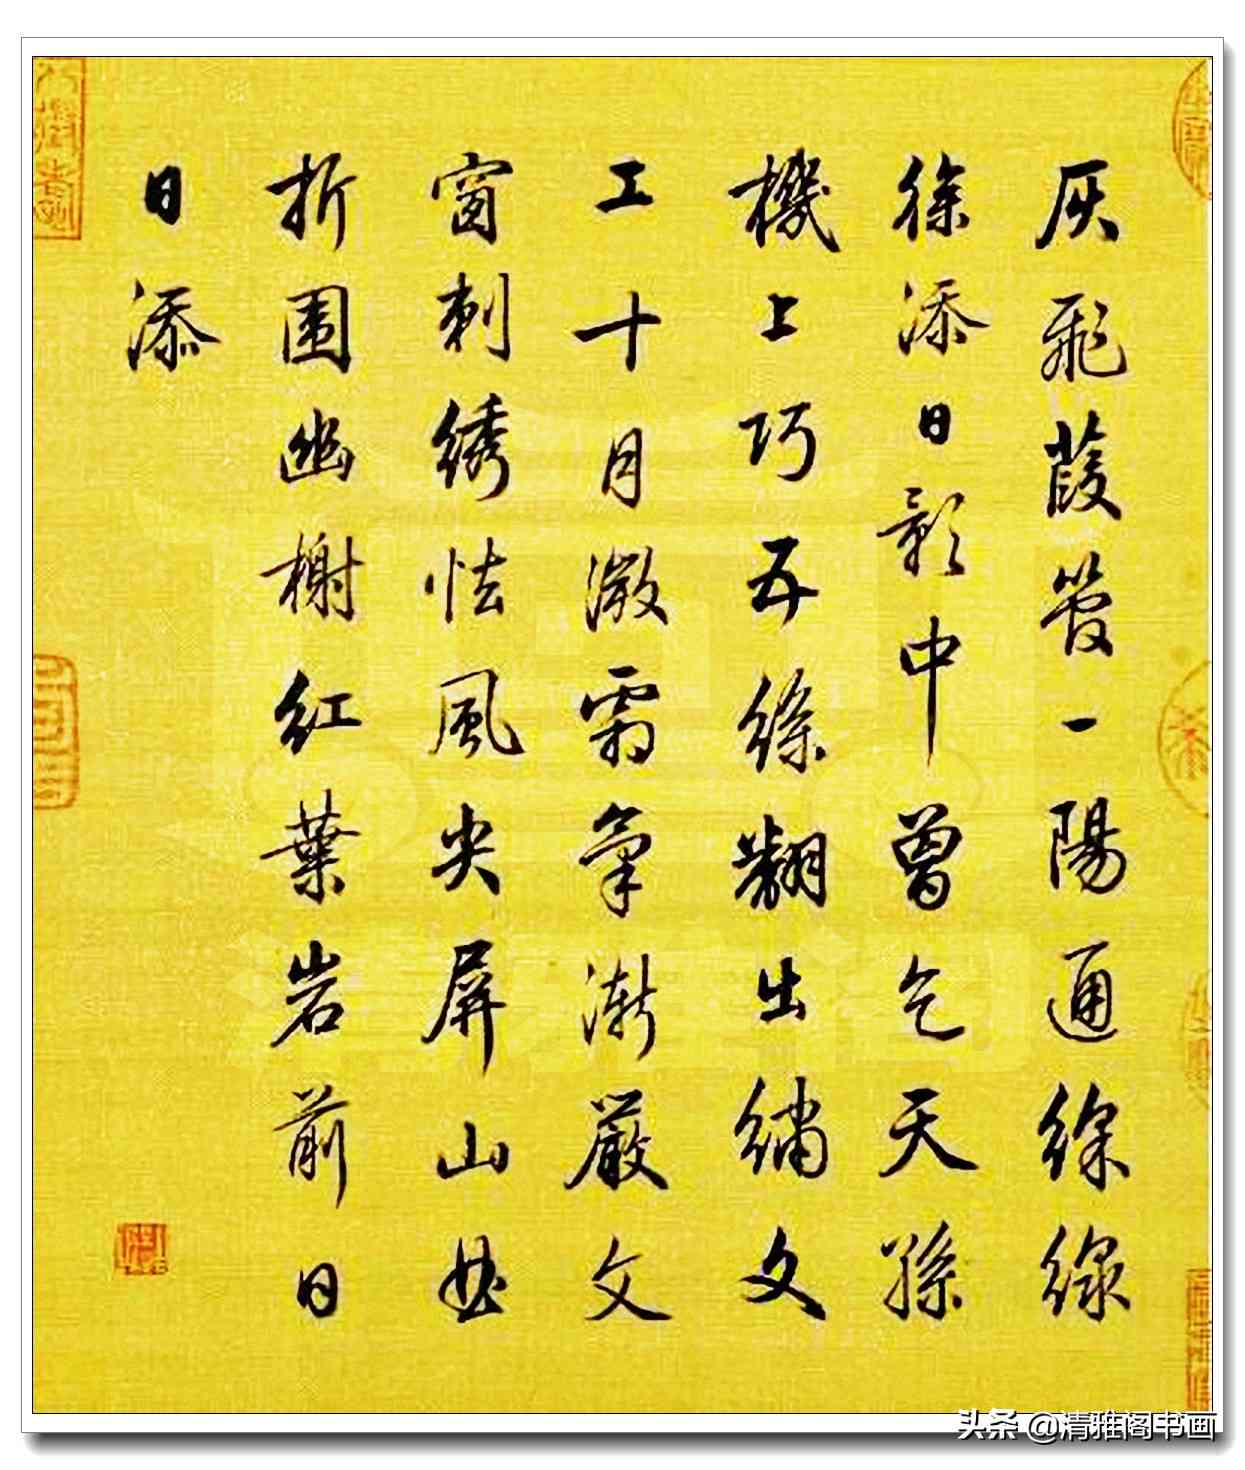 灰飛葭管一陽通線線
徐添日影中曾乞天孫
機上巧五絲翻出繡文
工十月漸霜氣漸嚴文
窗刺綉怯風尖屏山曲
折圍幽榭紅葉岩前日
日添
头条 @清雅阁书画